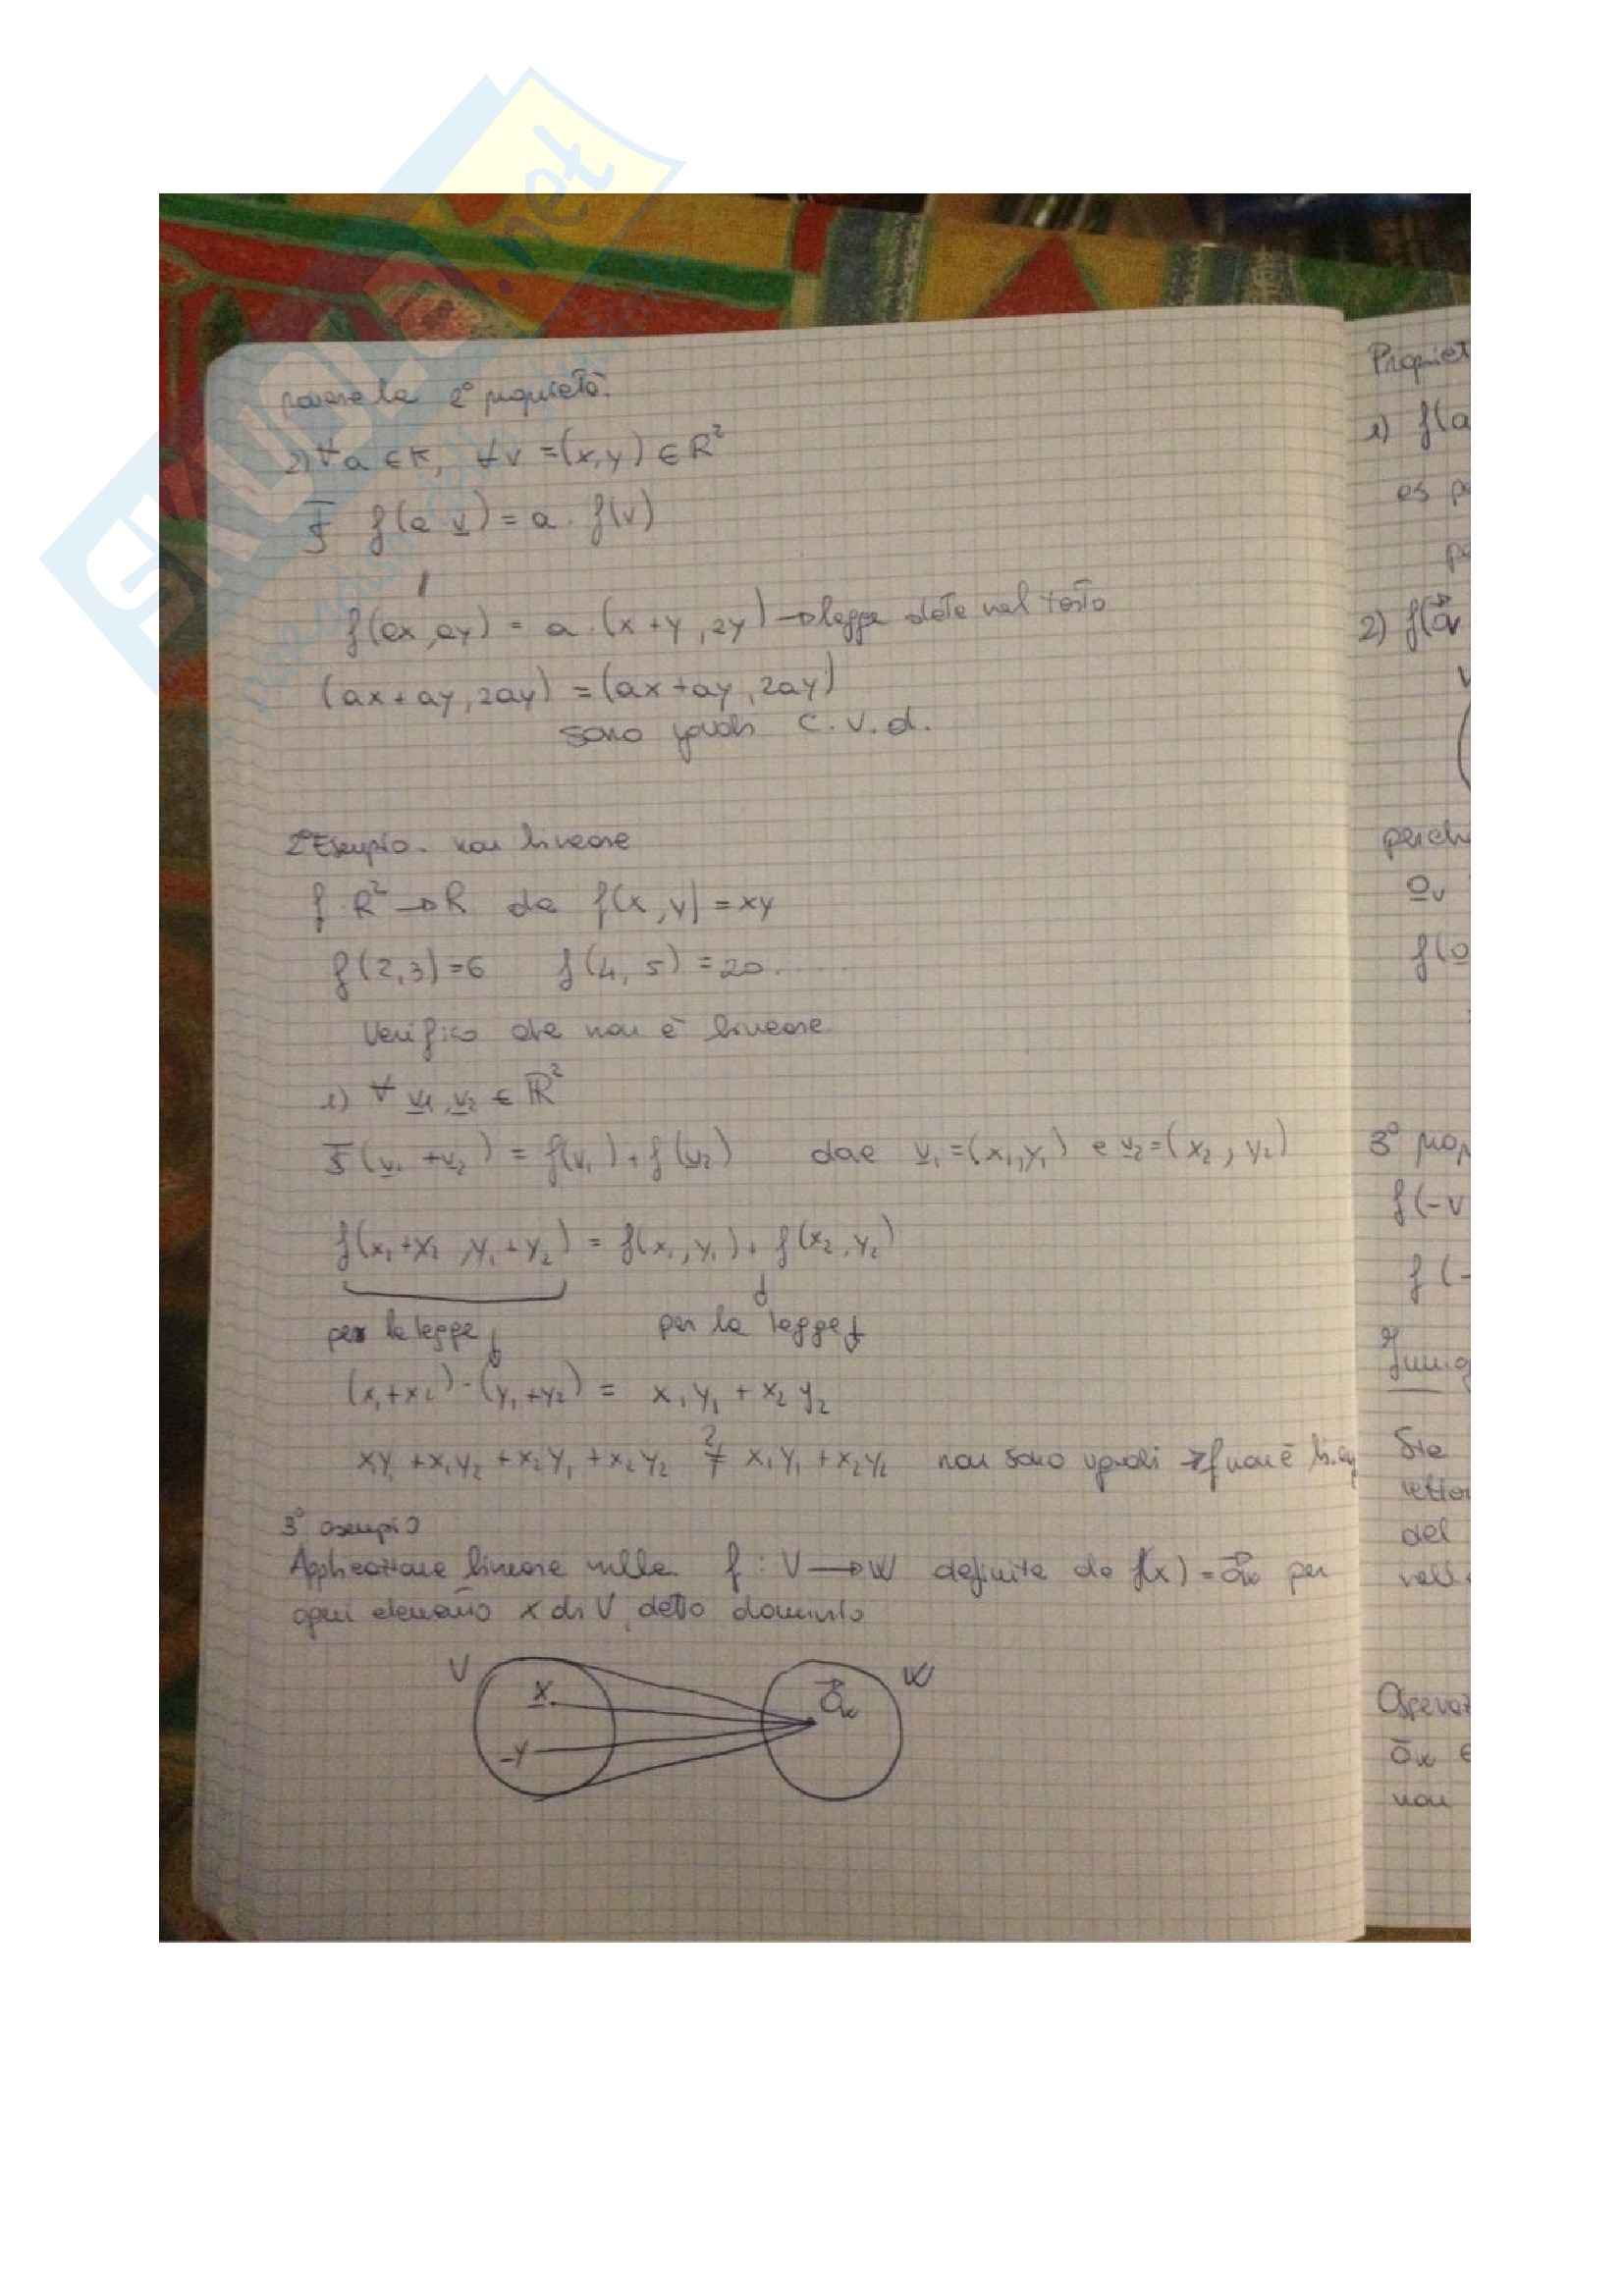 SKUOLA.net
provare la 2° proprietà.
2) ∀ a ∈ K, ∀ v = (x,y) ∈ R²
f(a v) = a · f(v)
f(ax, ay) = a · (x+y, 2y) → legge data nel testo
(ax+ay, 2ay) = (ax+ay, 2ay)
sono uguali C.V.d.
2° Esempio. non lineare
f R² → R da f(x,y) = xy
f(2,3)=6 f(4,5)=20.....
Verifico che non è lineare
1) ∀ v1, v2 ∈ R²
(v1 + v2) = f(v1) + f(v2) dove v1=(x1,y1) e v2=(x2, y2)
f(x1+x2, y1+y2) = f(x1,y1) + f(x2,y2)
per la legge per la legge
(x1+x2)·(y1+y2) = x1y1 + x2y2
x1y1 + x1y2 + x2y1 + x2y2 ≠ x1y1 + x2y2 non sono uguali → f non è
3° esempio
Applicazione lineare nulla f : V → W definita da f(x) = 0w per
ogni elemento x di V, detto dominio
V x y 0w W
Propriet
1) f(a
es pe
pe
2) f(
perch
0v
f(0
3° prop
f(-v
f(-
Immag
Sia
vettor
del
Osservaz
0w ∈
non